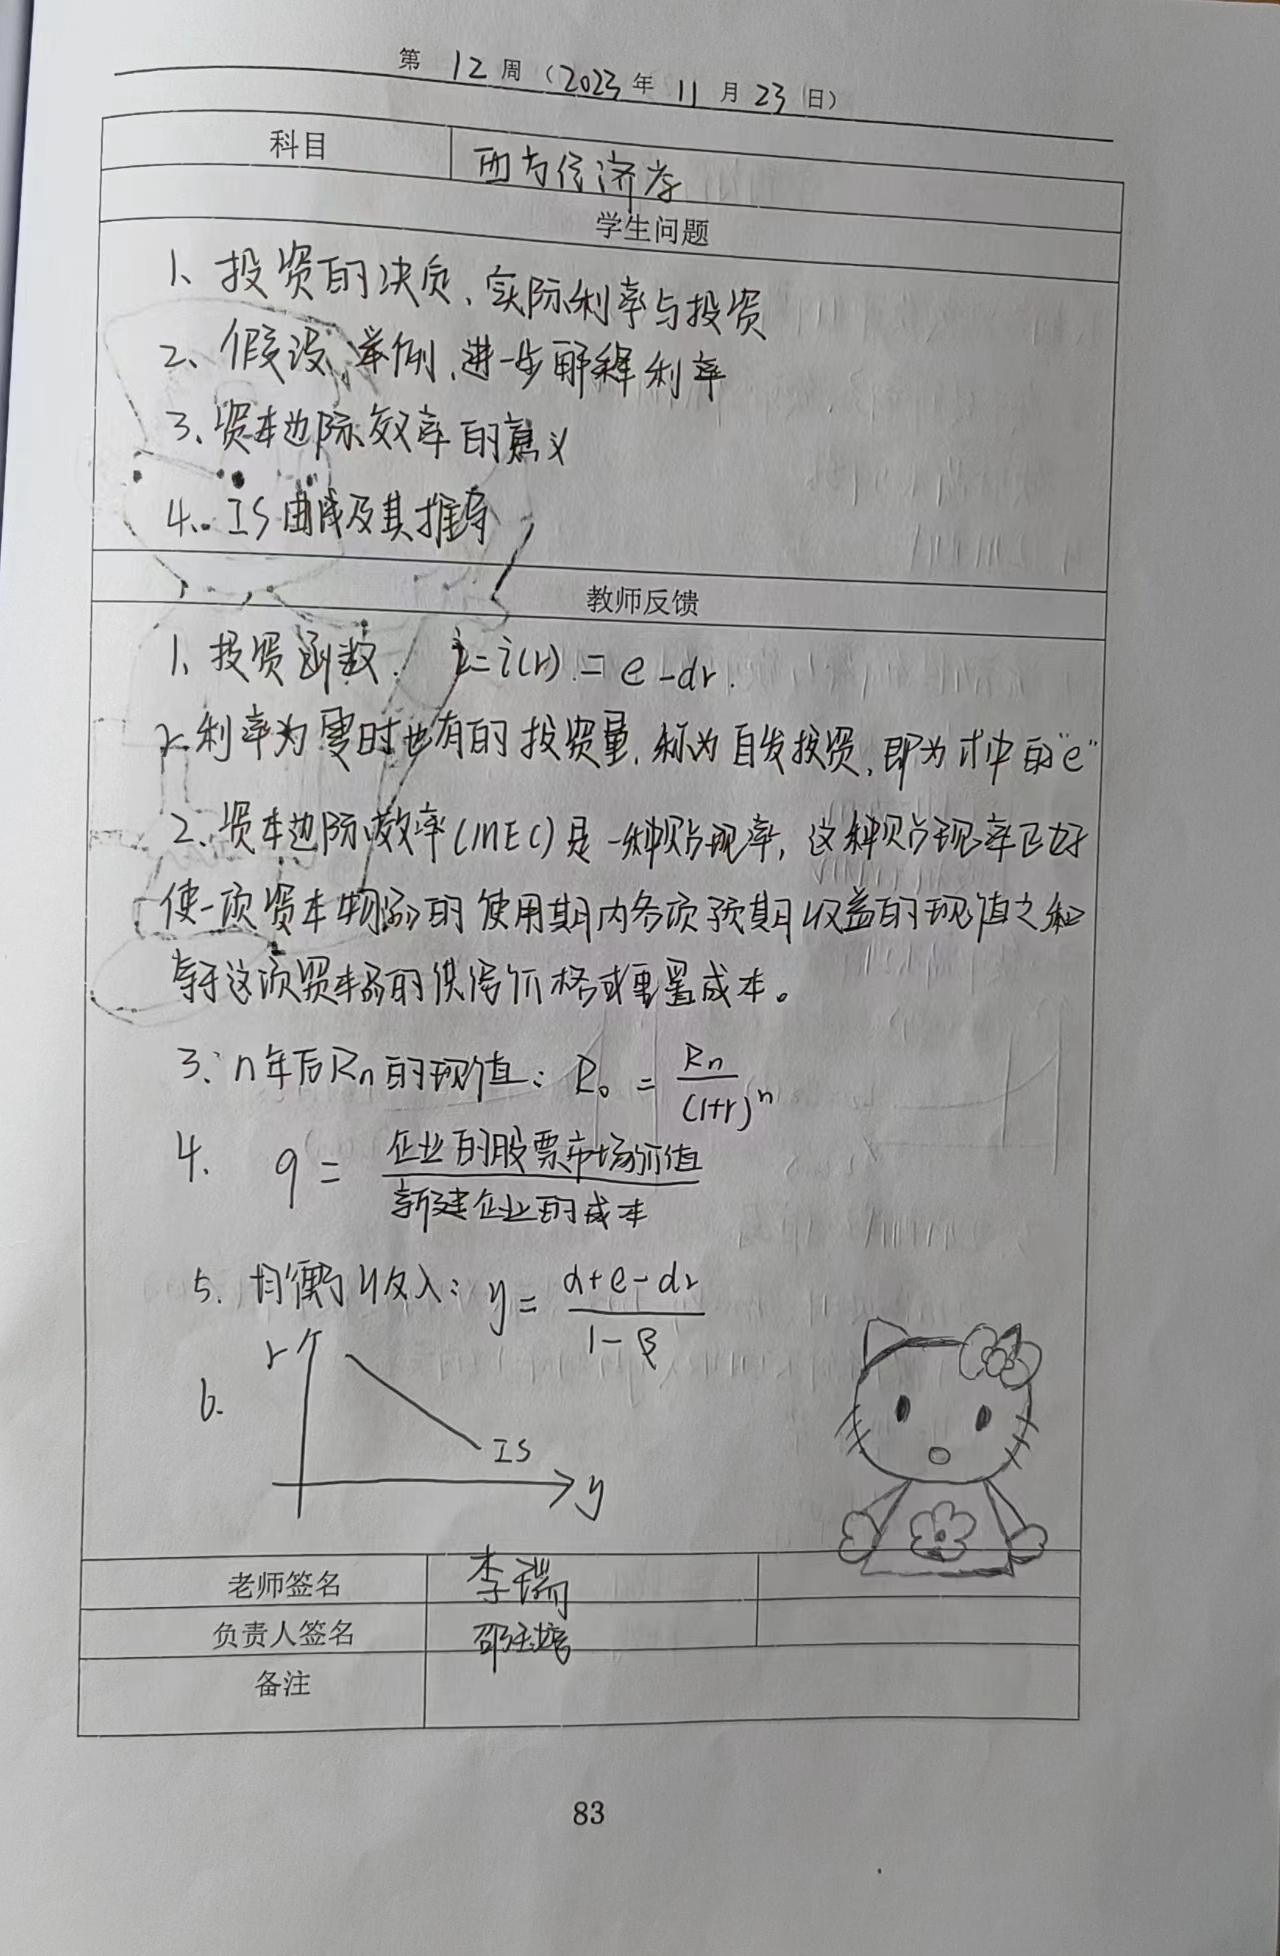 第 12 周（2023 年 11 月 23 日）
科目 西方经济学
学生问题
1、投资的决定、实际利率与投资
2、假设、举例、进一步解释利率
3、资本边际效率的意义
4、IS曲线及其推导
教师反馈
1、投资函数. i=i(r).=e-dr.
2.利率为零时也有的投资量,称为自发投资,即为才中的"e"
2、资本边际效率(MEC)是一种贴现率,这种贴现率正好
使一项资本物品的使用期内各项预期收益的现值之和
等于这项资本品的供给价格或重置成本。
3、n年后Rn的现值: R₀ = Rn/(1+r)ⁿ
4. q = 企业的股票市场价值/新建企业的成本
5、均衡收入: y = α+e-dr/1-β
6.
r
IS
y
老师签名 李瑞
负责人签名 邵
备注
83